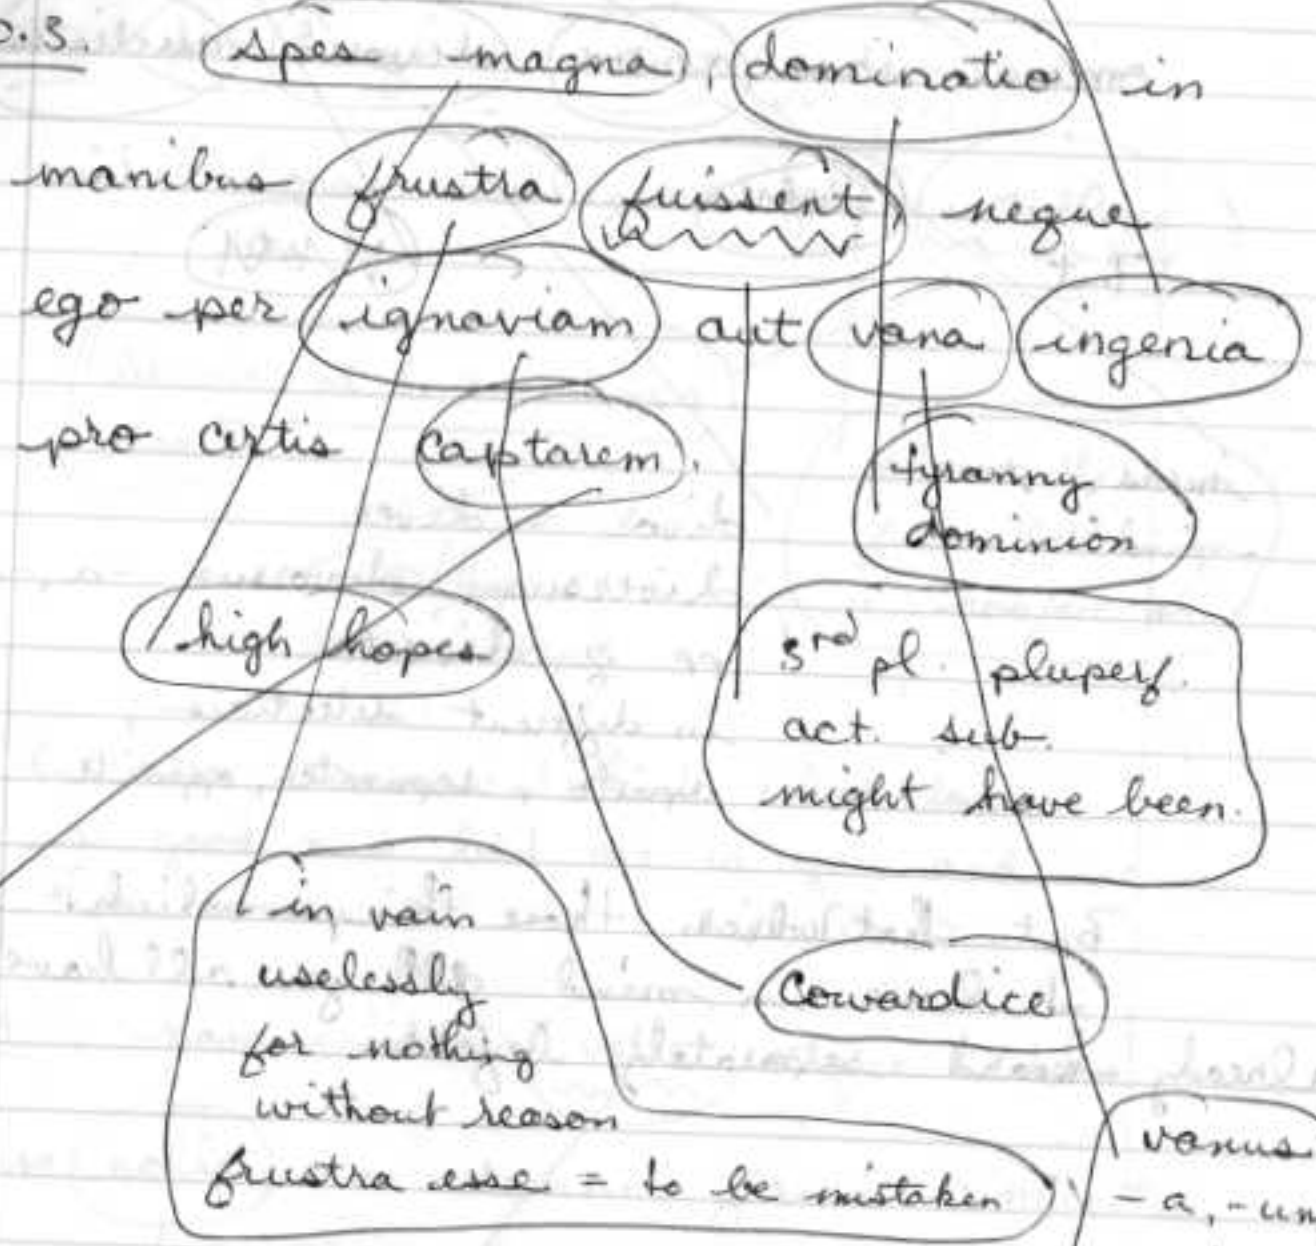 p.3. spes magna, dominatio in
manibus frustra fuissent neque
ego per ignaviam aut vana ingenia
pro certis captarem.
tyranny
dominion
high hopes
3rd pl. pluperf.
act. sub.
might have been.
in vain
uselessly
for nothing
without reason
frustra esse = to be mistaken
Cowardice
vanus
-a, -um